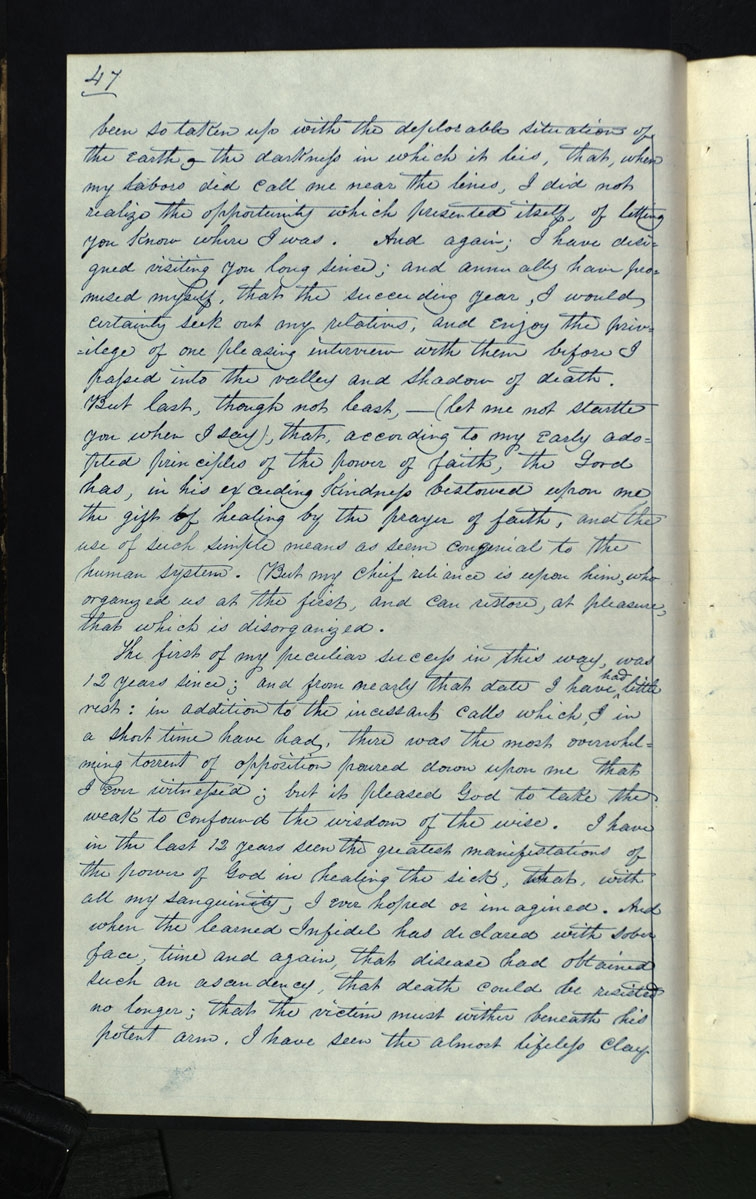 47
been so taken up with the deplorable situation of
the earth & the darkness in which it lies, that, when
my labors did call me near the lines, I did not
realize the opportunity which presented itself, of letting
you know where I was. And again; I have desi-
gned visiting you long since; and annually have pro-
mised myself, that the succeeding year, I would
certainly seek out my relatives, and enjoy the priv-
-ilege of one pleasing interview with them before I
passed into the valley and shadow of death.
But last, though not least, — (let me not startle
you when I say), that, according to my early ado-
pted principles of the power of faith, the Lord
has, in his exceeding kindness bestowed upon me
the gift of healing by the prayer of faith, and the
use of such simple means as seem congenial to the
human system. But my chief reliance is upon him, who
organized us at the first, and can restore, at pleasure,
that which is disorganized.
The first of my peculiar success in this way, was
12 years since; and from nearly that date I have had little
rest: in addition to the incessant calls which, I in
a short time have had, there was the most overwhel-
ming torrent of opposition poured down upon me that
I ever witnessed; but it pleased God to take the
weak to confound the wisdom of the wise. I have
in the last 12 years seen the greatest manifestations of
the power of God in healing the sick, that, with
all my sanguinity, I ever hoped or imagined. And
when the learned Infidel has declared with sober
face, time and again, that disease had obtained
such an ascendency, that death could be resisted
no longer; that the victim must wither beneath his
potent arm. I have seen the almost lifeless clay